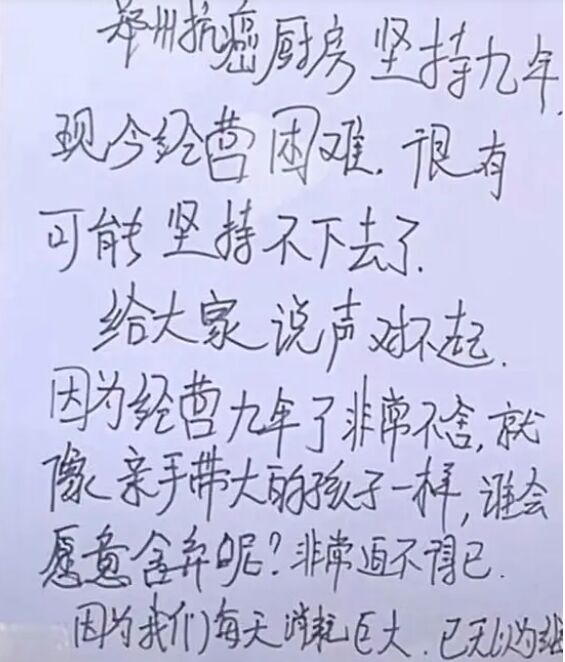 郑州抗癌厨房坚持九年,
现今经营困难.很有
可能坚持不下去了.
给大家说声对不起.
因为经营九年了非常不舍,就
像亲手带大的孩子一样,谁会
愿意舍弃呢?非常迫不得已.
因为我们每天消耗巨大.已无以为继